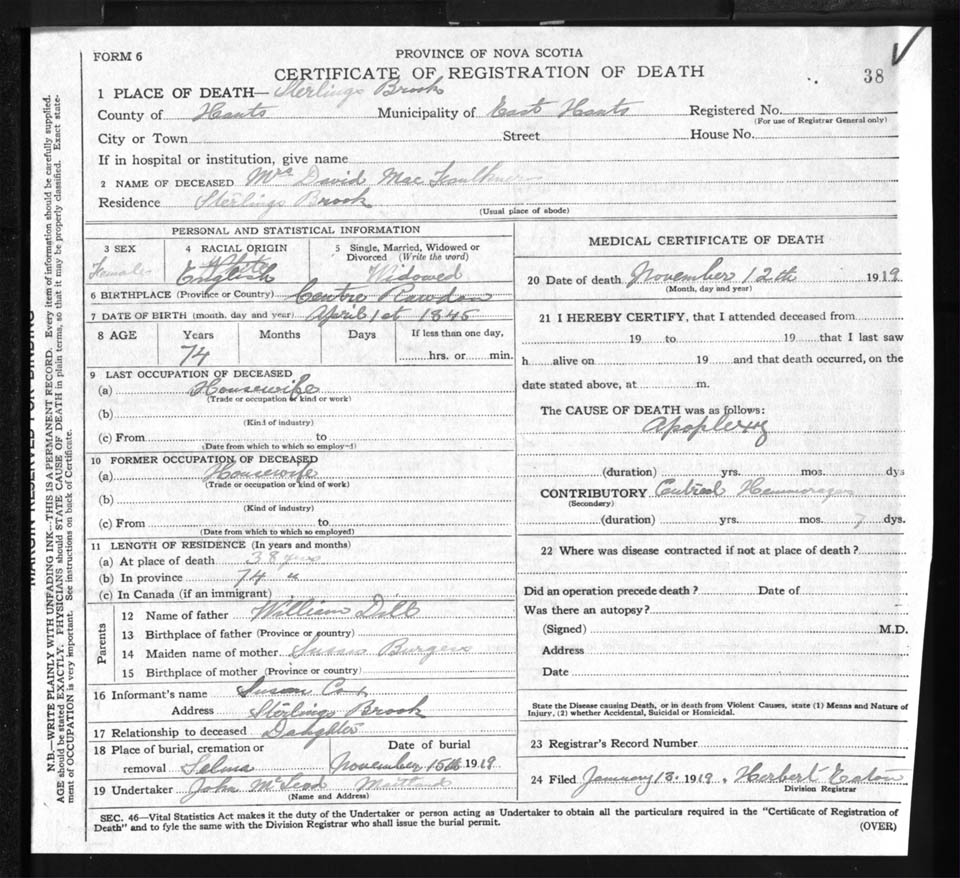 FORM 6
PROVINCE OF NOVA SCOTIA
CERTIFICATE OF REGISTRATION OF DEATH
38
1 PLACE OF DEATH— Sterlings Brook
County of Hants Municipality of East Hants Registered No.
(For use of Registrar General only)
City or Town Street House No.
If in hospital or institution, give name
2 NAME OF DECEASED Mrs David Mac Faulkner
Residence Sterlings Brook
(Usual place of abode)
PERSONAL AND STATISTICAL INFORMATION
3 SEX 4 RACIAL ORIGIN 5 Single, Married, Widowed or Divorced (Write the word)
Female White English Widowed
6 BIRTHPLACE (Province or Country) Centre Rawdon
7 DATE OF BIRTH (month, day and year) April 1st 1845
8 AGE Years Months Days If less than one day,
74 hrs. or min.
9 LAST OCCUPATION OF DECEASED
(a) Housewife
(Trade or occupation or kind or work)
(b)
(Kind of industry)
(c) From to
(Date from which to which so employed)
10 FORMER OCCUPATION OF DECEASED
(a) Housewife
(Trade or occupation or kind of work)
(b)
(Kind of industry)
(c) From to
(Date from which to which so employed)
11 LENGTH OF RESIDENCE (In years and months)
(a) At place of death 38 yrs
(b) In province 74 "
(c) In Canada (if an immigrant)
Parents
12 Name of father William Dill
13 Birthplace of father (Province or country)
14 Maiden name of mother Burgess
15 Birthplace of mother (Province or country)
16 Informant's name Susan Cox
Address Sterlings Brook
17 Relationship to deceased Daughter
18 Place of burial, cremation or removal Selma
Date of burial November 15th 1919
19 Undertaker John McLead Maitland
(Name and Address)
MEDICAL CERTIFICATE OF DEATH
20 Date of death November 12th 1919
(Month, day and year)
21 I HEREBY CERTIFY, that I attended deceased from
19 to 19 that I last saw
h alive on 19 and that death occurred, on the
date stated above, at m.
The CAUSE OF DEATH was as follows:
Apoplexy
(duration) yrs. mos. dys
CONTRIBUTORY
(Secondary)
(duration) yrs. mos. 7 dys.
22 Where was disease contracted if not at place of death?
Did an operation precede death? Date of
Was there an autopsy?
(Signed) M.D.
Address
Date
State the Disease causing Death, or in death from Violent Causes, state (1) Means and Nature of
Injury, (2) whether Accidental, Suicidal or Homicidal.
23 Registrar's Record Number
24 Filed January 13. 1919, Herbert Eaton
Division Registrar
SEC. 46—Vital Statistics Act makes it the duty of the Undertaker or person acting as Undertaker to obtain all the particulars required in the "Certificate of Registration of
Death" and to fyle the same with the Division Registrar who shall issue the burial permit.
(OVER)
MARGIN RESERVED FOR BINDING
N.B.—WRITE PLAINLY WITH UNFADING INK—THIS IS A PERMANENT RECORD. Every item of information should be carefully supplied.
AGE should be stated EXACTLY. PHYSICIANS should STATE CAUSE OF DEATH in plain terms, so that it may be properly classified. Exact state-
ment of OCCUPATION is very important. See instructions on back of Certificate.